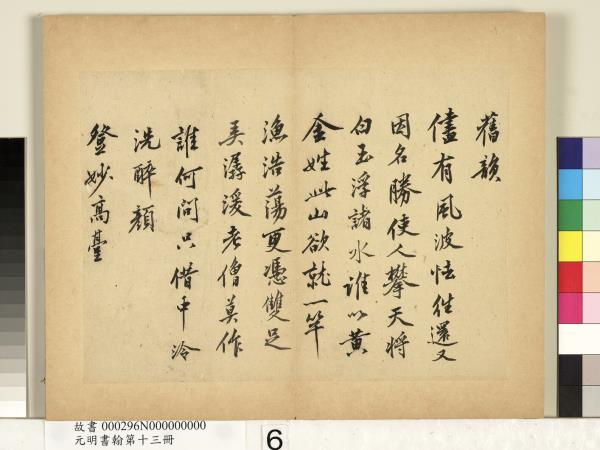 舊韻
儘有風波怯往還又
因名勝使人攀天將
白玉浮諸水誰以黃
金姓此山欲就一竿
漁浩蕩更憑雙足
弄潺湲老僧莫作
誰何問只借中泠
洗醉顏
登妙高臺
故書 000296N000000000
元明書翰第十三冊
6